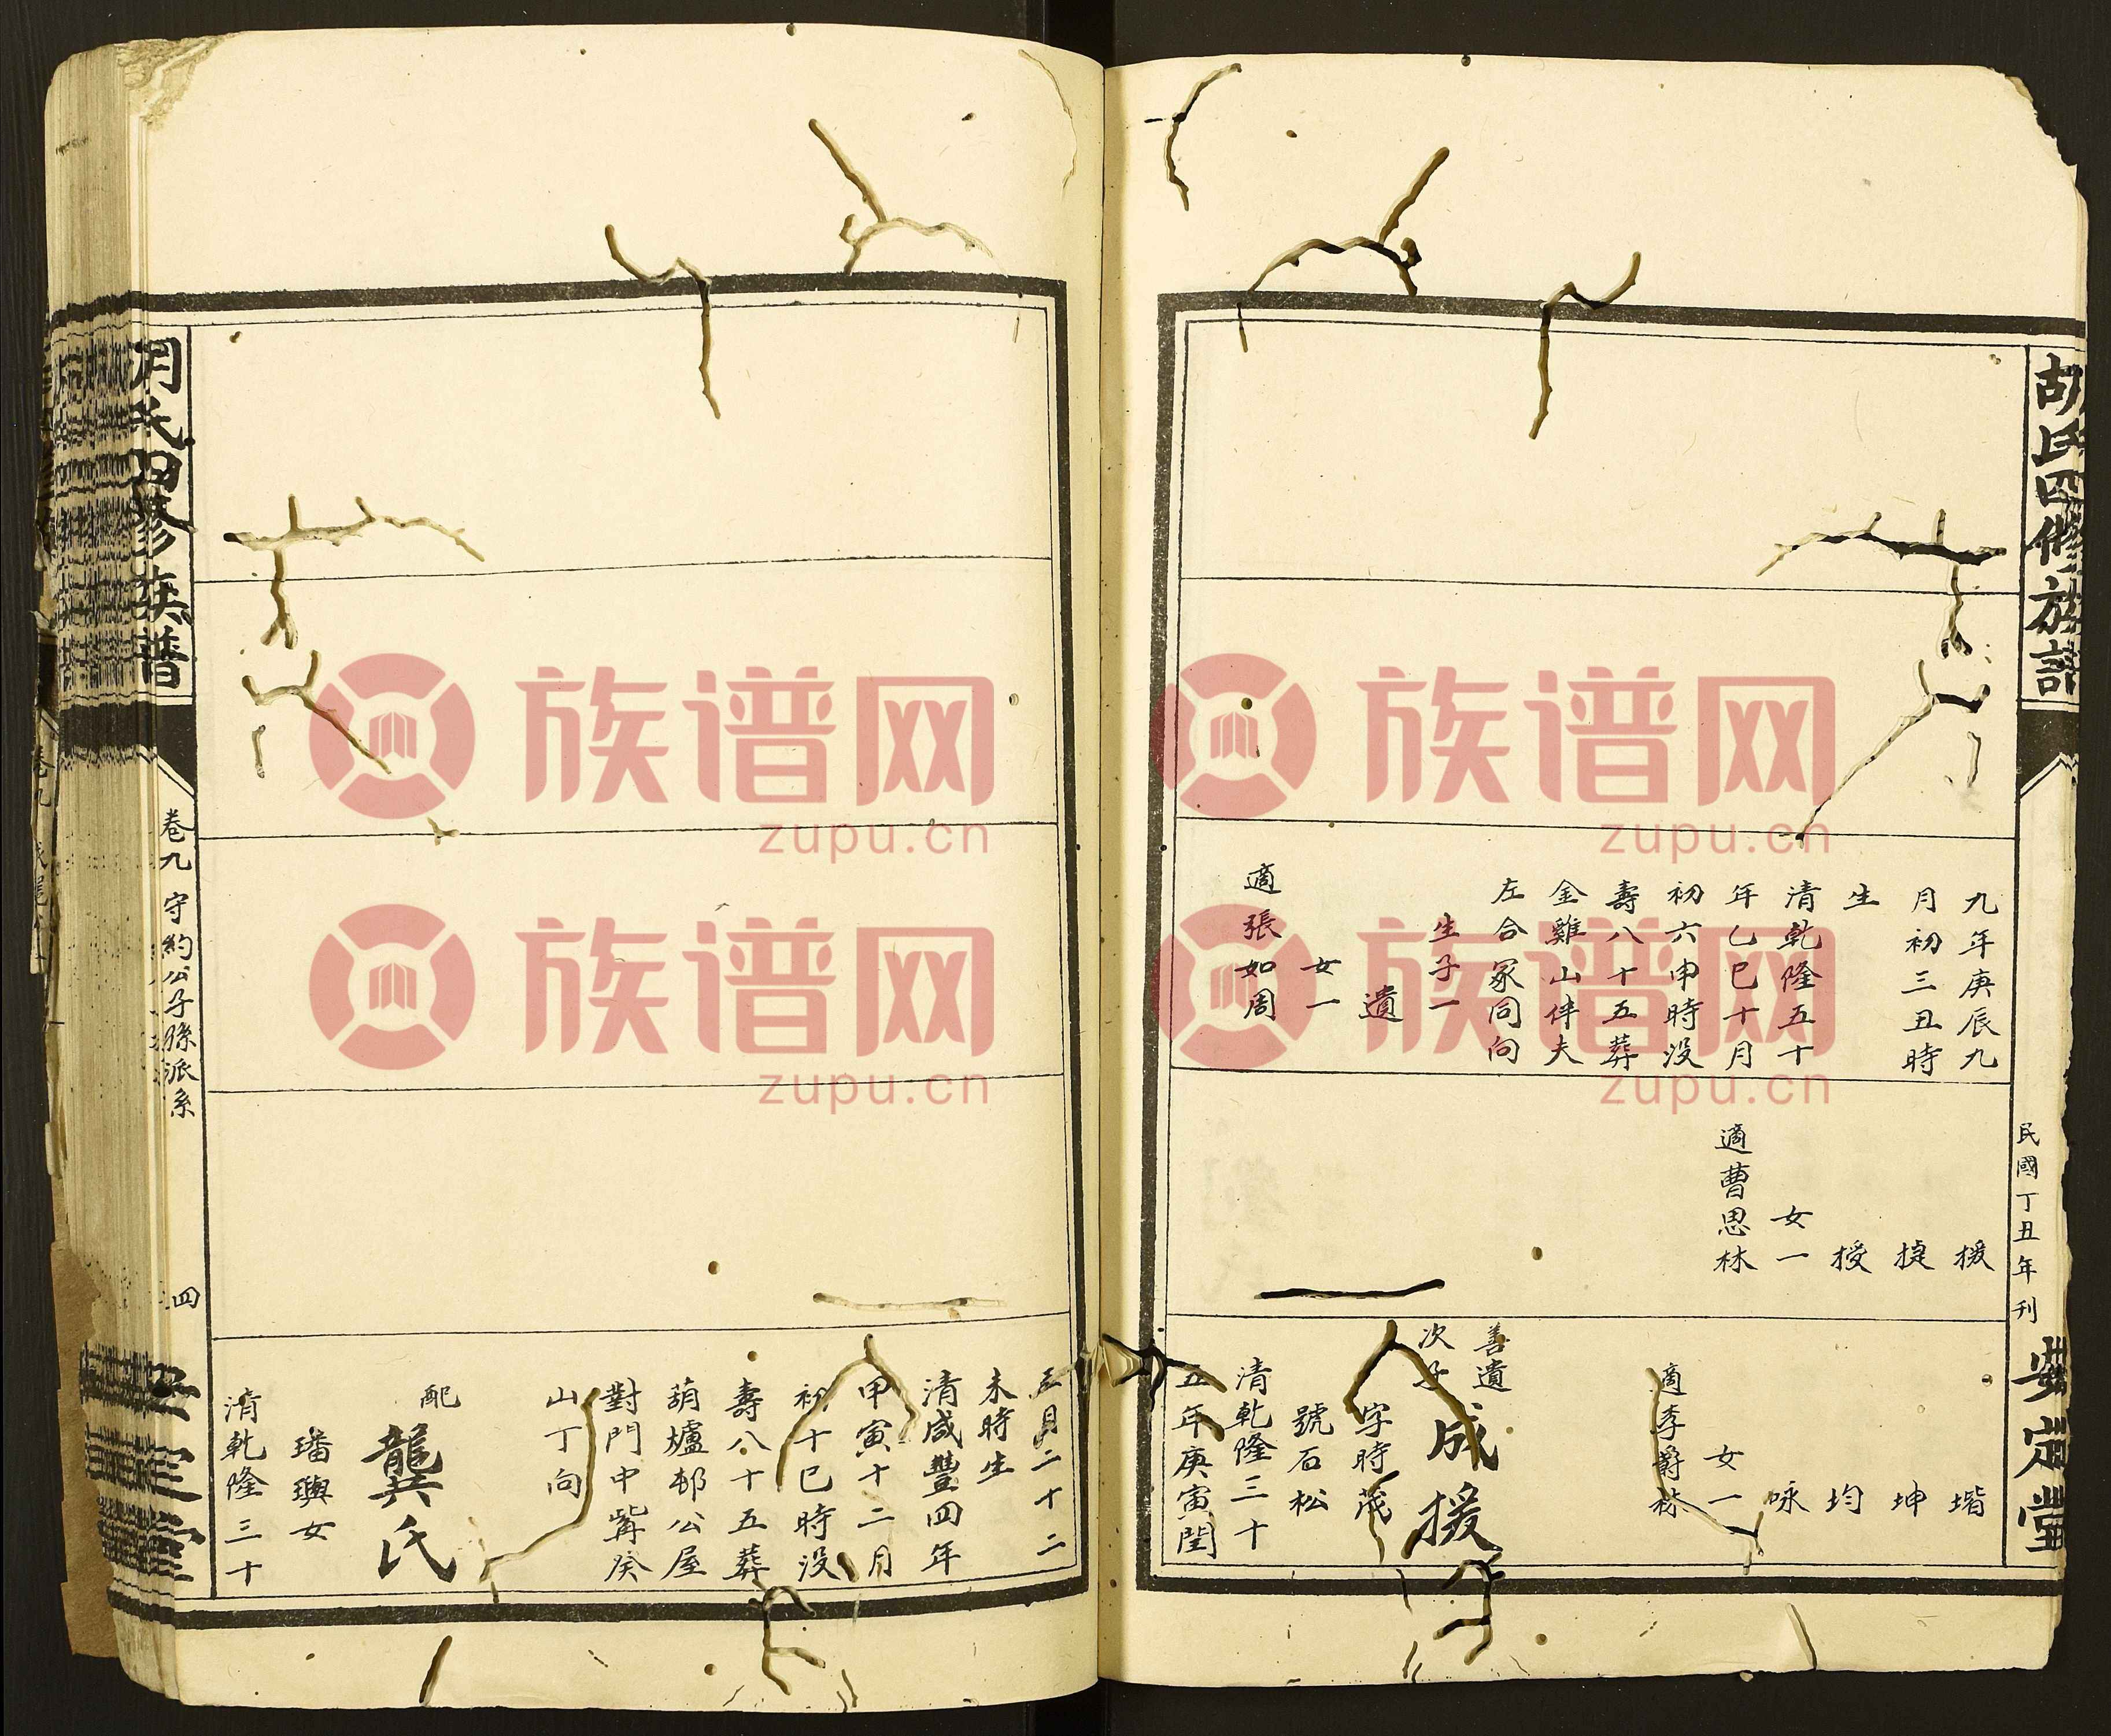 胡氏四修族譜
民國丁丑年刊
安定堂
九年庚辰九
月初三丑時
生
清乾隆五十
年乙巳十月
初六申時没
壽八十五葬
金雞山伴夫
左合冢同向
生子一
遺
女一
適張如周
援
捷
授
女一
適曹思林
堦
坤
均
咏
女一
適李爵林
善遺
次子
成援
字時茂
號石松
清乾隆三十
五年庚寅閏
五月二十二
未時生
清咸豐四年
甲寅十二月
初十巳時没
壽八十五葬
葫蘆邨公屋
對門中嘴癸
山丁向
配
龔氏
璠璵女
清乾隆三十
胡氏四修族譜
卷九
守約公子孫派系
四
安定堂
族谱网
zupu.cn
族谱网
zupu.cn
族谱网
zupu.cn
族谱网
zupu.cn